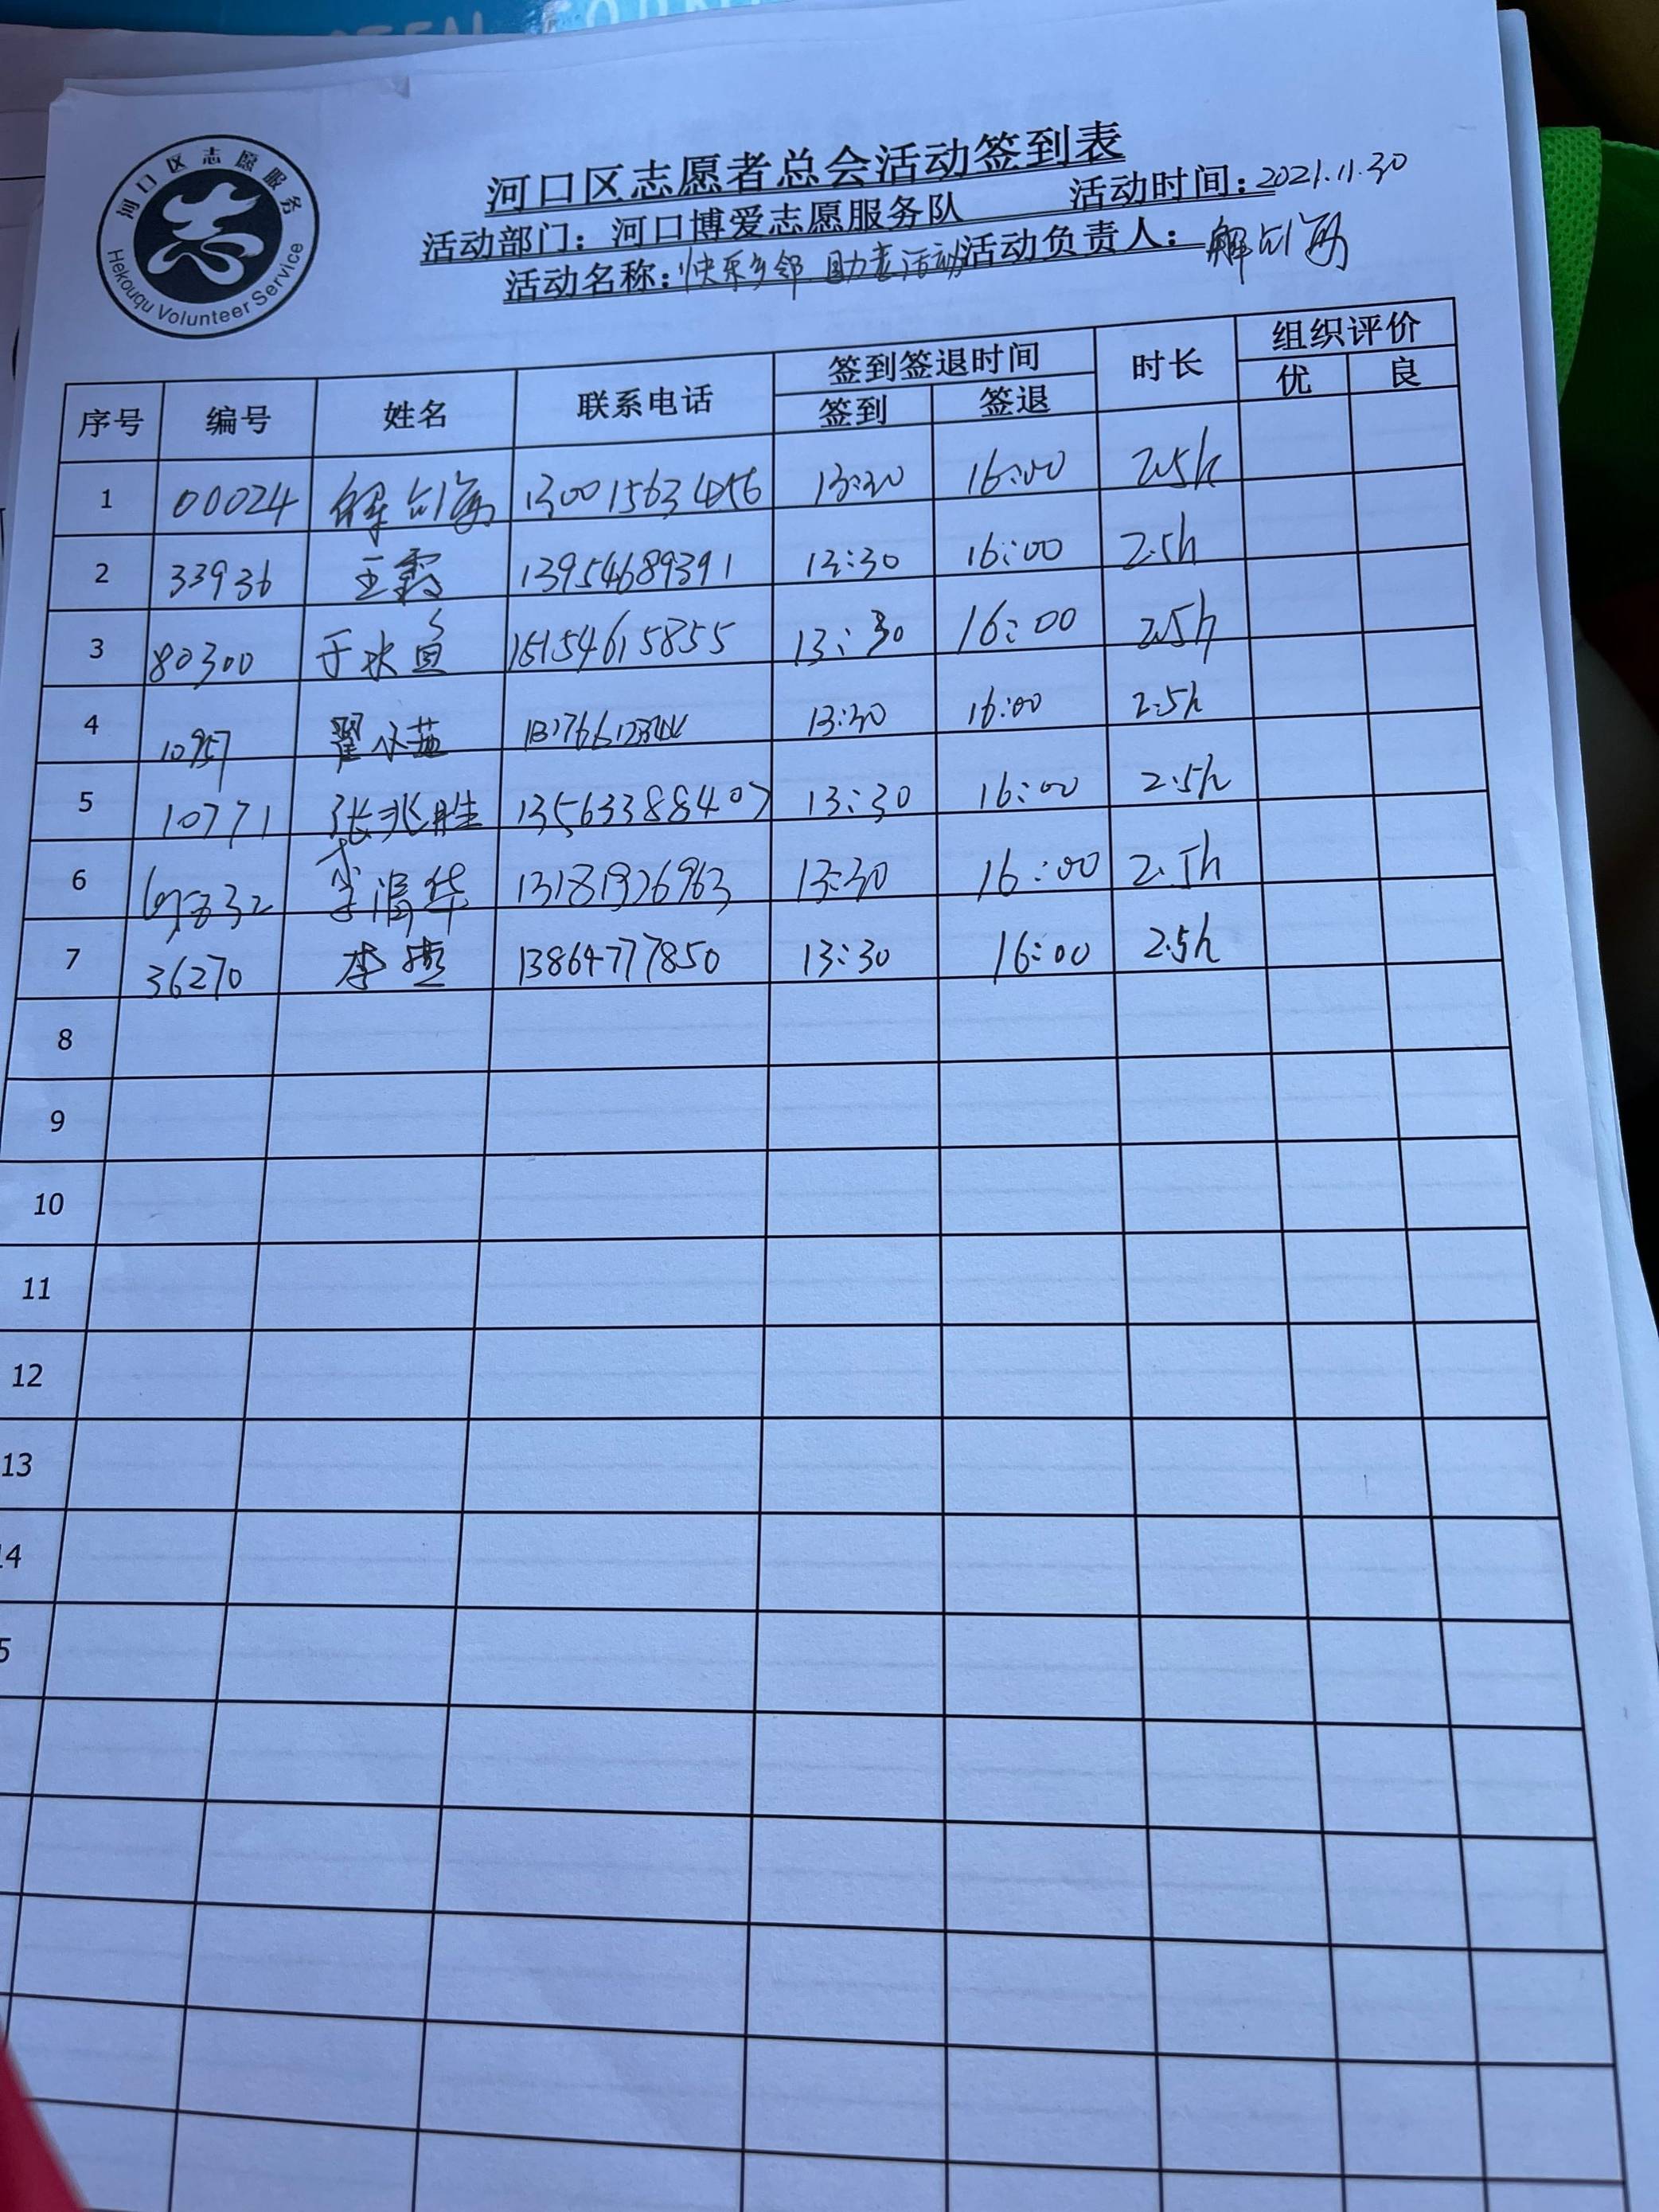 河口区志愿服务
Hekouqu Volunteer Service
河口区志愿者总会活动签到表
活动部门：河口博爱志愿服务队 活动时间：2021.11.30
活动名称：快乐乡邻 助老活动 活动负责人：解
序号 编号 姓名 联系电话 签到签退时间 时长 组织评价
签到 签退 优 良
1 00024 解 13001563456 13:30 16:00 2.5h
2 33936 王霞 13954689391 13:30 16:00 2.5h
3 80300 于 15154615855 13:30 16:00 2.5h
4 10957 翟 13:30 16:00 2.5h
5 10771 张兆胜 13563388407 13:30 16:00 2.5h
6 李 华 13181926963 13:30 16:00 2.5h
7 36270 李燕 13864777850 13:30 16:00 2.5h
8
9
10
11
12
13